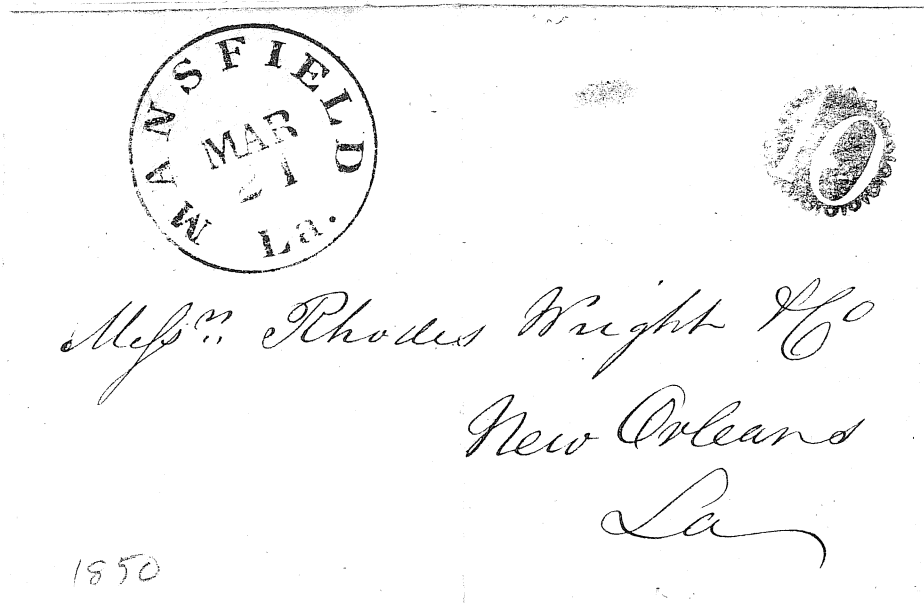 MANSFIELD
MAR
21
La.
10
Messrs. Rhodes Wright & Co
New Orleans
La
1850